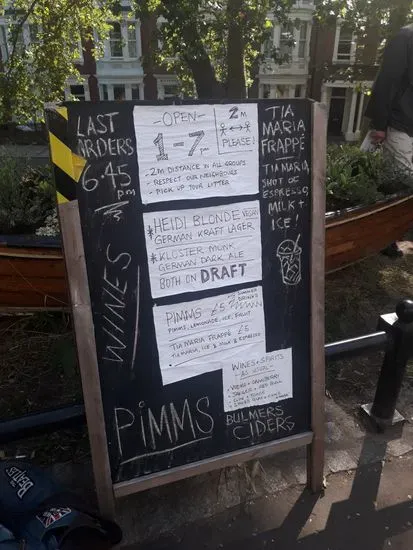 LAST
ORDERS
6.45
PM
WINES
PIMMS
-OPEN-
1-7
PM
2M
PLEASE!
- 2M DISTANCE IN ALL GROUPS
- RESPECT OUR NEIGHBOURS
- PICK UP YOUR LITTER
* HEIDI BLONDE VEGAN
GERMAN KRAFT LAGER
* KLOSTER MUNK
GERMAN DARK ALE
BOTH ON DRAFT
PIMMS £5 SUMMER DRINKS
PIMMS, LEMONADE, ICE, FRUIT
TIA MARIA FRAPPÉ £5
TIA MARIA, ICE & MILK & ESPRESSO
WINES + SPIRITS
AS USUAL
- VODKA + CRANBERRY
- JAEGER + RED BULL
TIA
MARIA
FRAPPÉ
TIA MARIA,
SHOT OF
ESPRESSO,
MILK +
ICE!
BULMERS
CIDERS